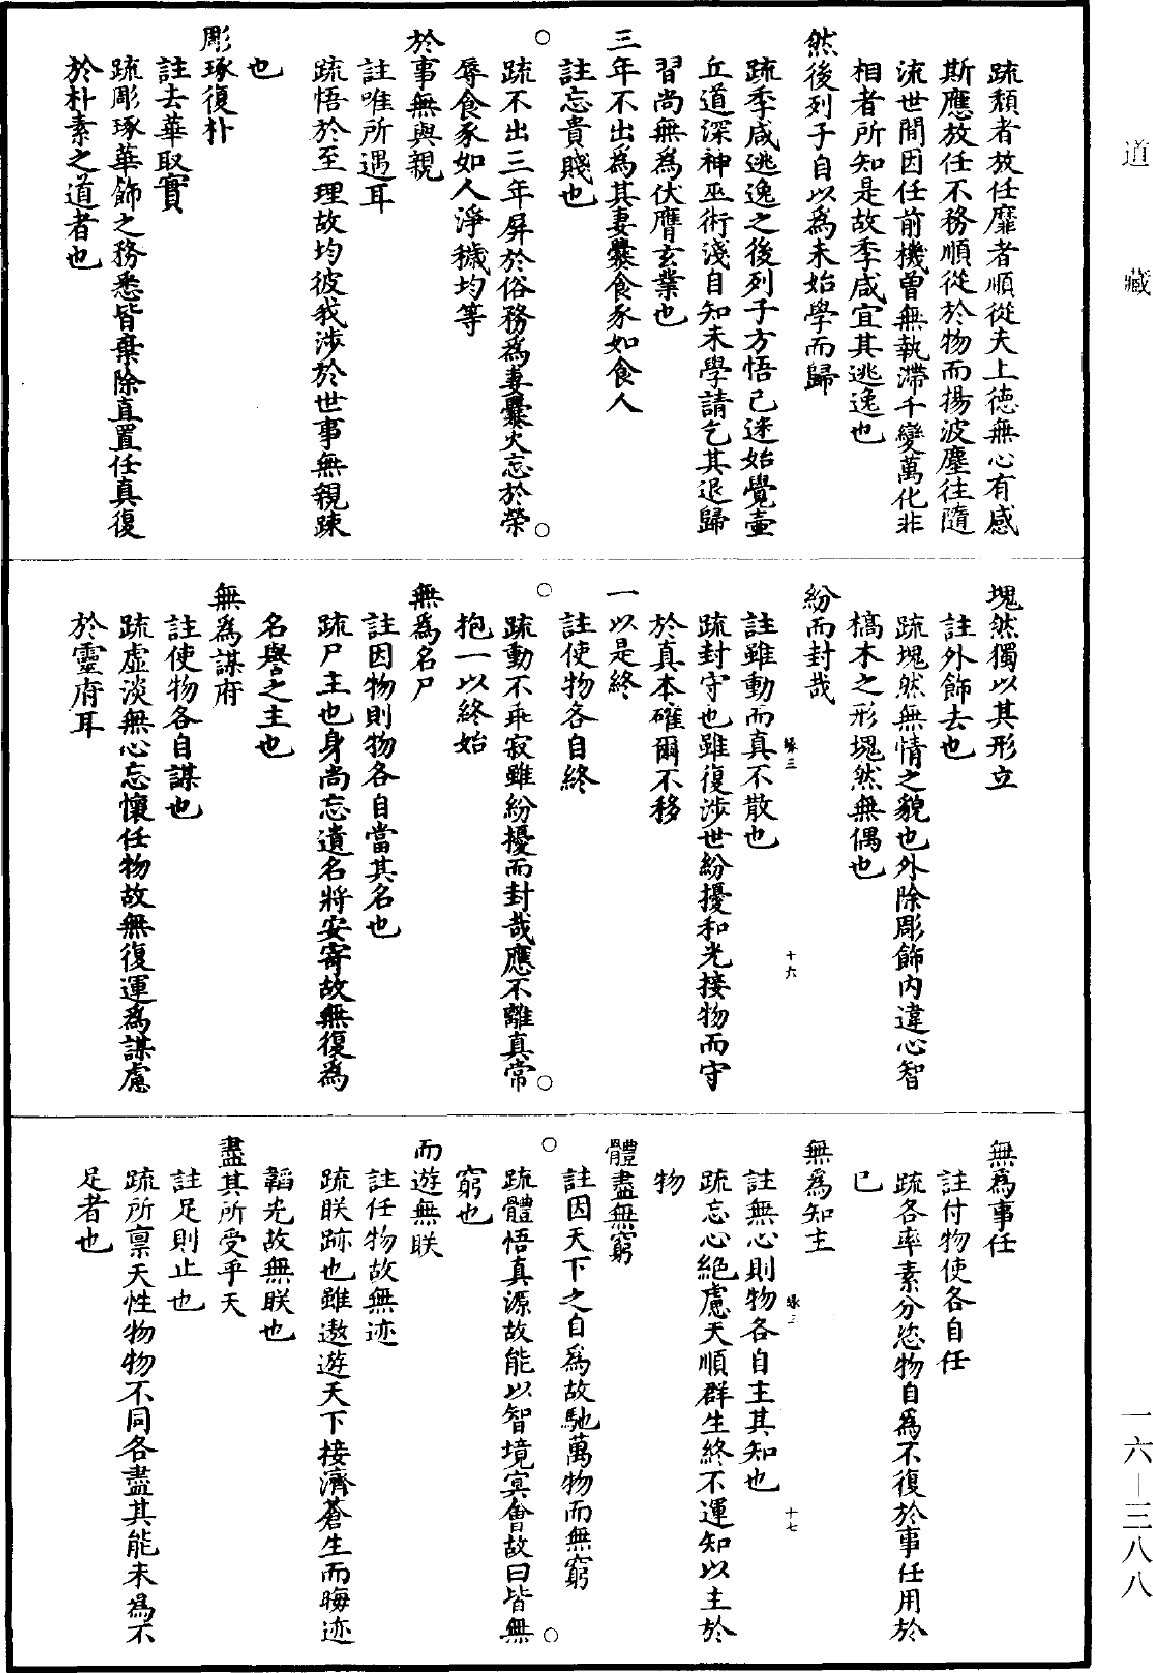 道　藏
疏頹者放任靡者順從夫上德無心有感
斯應放任不務順從於物而揚波塵往隨
流世間因任前機曾無執滯千變萬化非
相者所知是故季咸宜其逃逸也
然後列子自以為未始學而歸
疏季咸逃逸之後列子方悟己迷始覺壷
丘道深神巫術淺自知未學請乞其退歸
習尚無為伏膺玄業也
三年不出為其妻爨食豕如食人
註忘貴賤也
疏不出三年屏於俗務為妻爨火忘於榮
辱食豕如人淨穢均等
於事無與親
註唯所遇耳
疏悟於至理故均彼我涉於世事無親踈
也
彫琢復朴
註去華取實
疏彫琢華飾之務悉皆棄除直置任真復
於朴素之道者也
塊然獨以其形立
註外飾去也
疏塊然無情之貌也外除彫飾內違心智
槁木之形塊然無偶也
紛而封哉
註雖動而真不散也
疏封守也雖復涉世紛擾和光接物而守
於真本確爾不移
一以是終
註使物各自終
疏動不乖寂雖紛擾而封哉應不離真常
抱一以終始
無為名尸
註因物則物各自當其名也
疏尸主也身尚忘遺名將安寄故無復為
名譽之主也
無為謀府
註使物各自謀也
疏虛淡無心忘懷任物故無復運為謀慮
於靈府耳
無為事任
註付物使各自任
疏各率素分恣物自為不復於事任用於
己
無為知主
註無心則物各自主其知也
疏忘心絕慮天順群生終不運知以主於
物
體盡無窮
註因天下之自為故馳萬物而無窮
疏體悟真源故能以智境㝠會故曰皆無
窮也
而遊無眹
註任物故無迹
疏眹跡也雖遨遊天下接濟蒼生而晦迹
韜光故無眹也
盡其所受乎天
註足則止也
疏所禀天性物物不同各盡其能未為不
足者也
十六
十七
一六—三八八